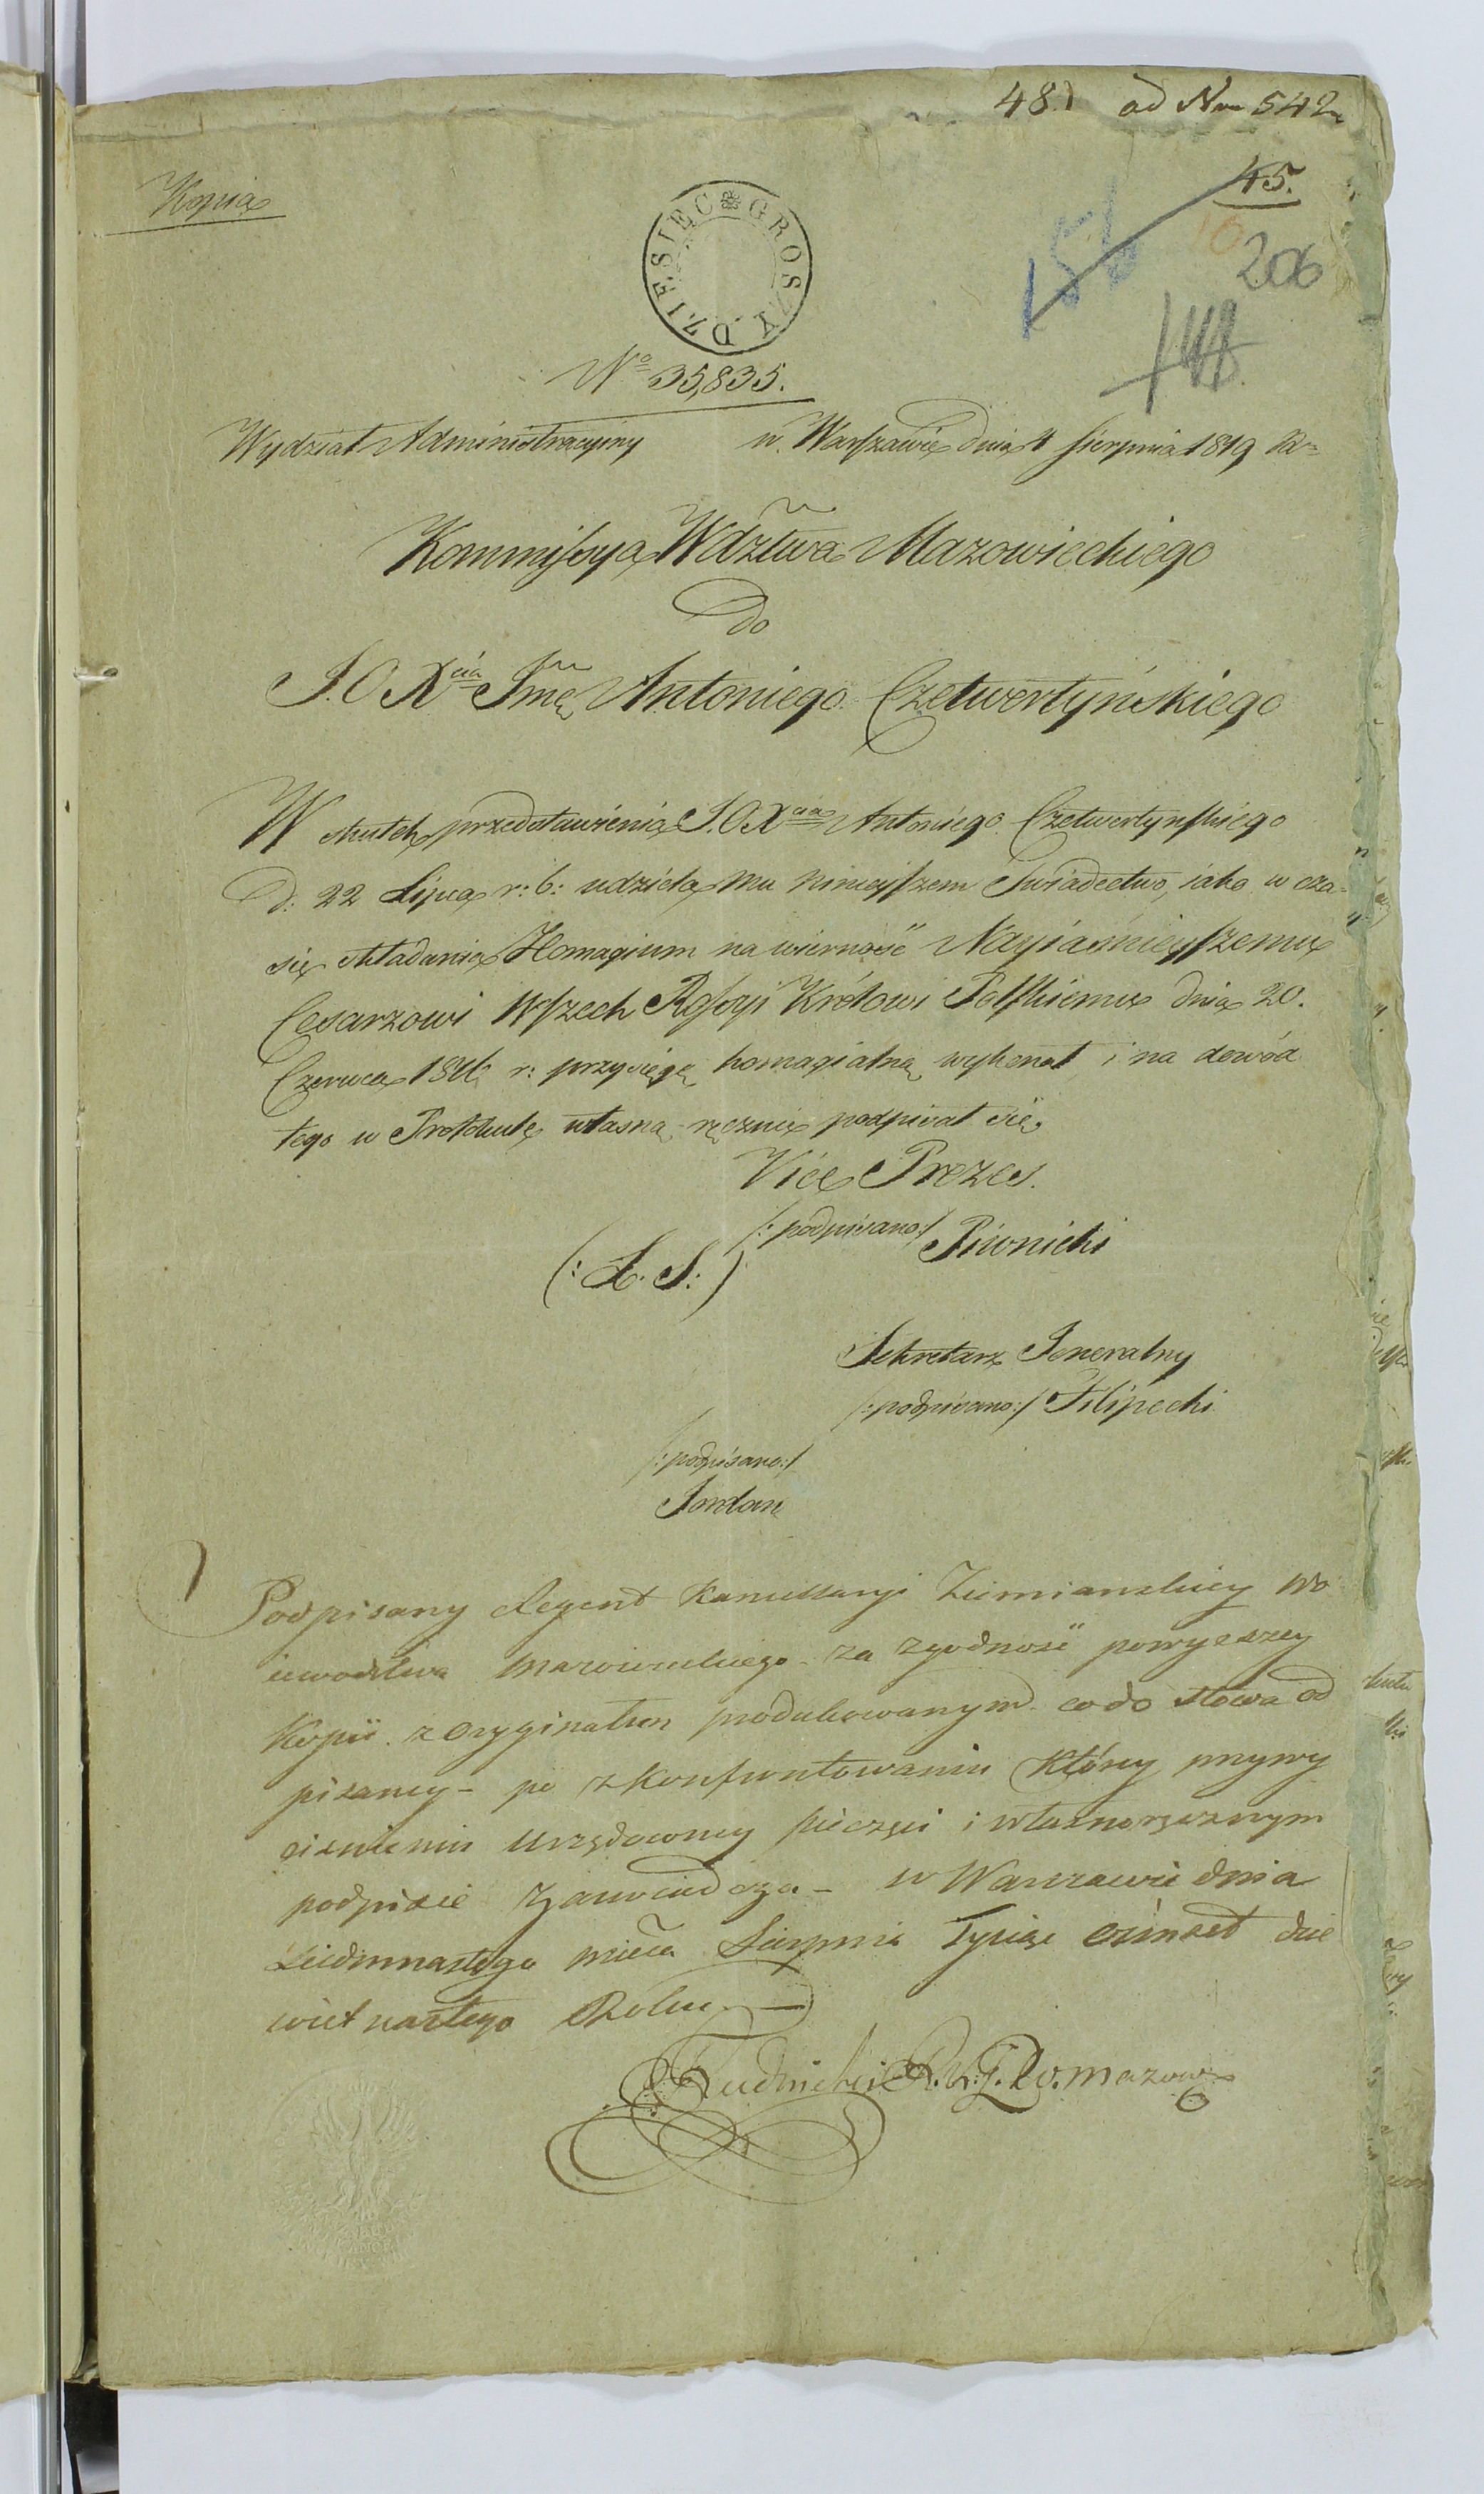 48.) ad Nm 542
45.
Kopia
DZIESIĘC GROSZY
156
10
206
148
No 35,835.
Wydział Administracyiny w Warszawie dnia 4 Sierpnia 1819 Rr
Kommissya Wdztwa Mazowieckiego
do
J.O Xcia Jmę Antoniego Czetwertyńskiego
W skutek przedstawienia J.O Xcia Antoniego Czetwertynskiego
d: 22 Lipca r: b: udziela mu nineiszem Swiadectwo, iako w cza-
się składania Homagium na wierność Nayiaśnieyszemu
Cesarzowi Wszech Rossyi Królowi Polskiemu dnia 20.
Czerwca 181 r: przysięgę homagialną wykonał i na dowód
tego w Protokule własną ręcznie podpisał się.
Vice Prezes.
/:podpisano:/ Piwnicki
(: L. S:)
Sekretarz Jeneralny
/:podpisano:/ Filipecki
/:podpisano:/
Jordan
Podpisany Regent Kancellaryi Ziemianskiey Wo
iewodztwa Mazowieckiego za zgodność powyższey
Kopii z Oryginałem produkowanym co do słowa od
pisaney – po zkonfrontowaniu Którey przywy
ciśnieniu Urzędowney pieczęci i własnoręcznym
podpisie zaświadcza – w Warszawie dnia
Siedmnastego mieca Sierpnia Tysiąc ośmset dzie
więtnastego Roku –
Rudnicki R. K. Z. Wo. Mazow